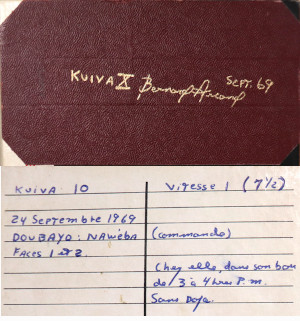 KUIVA X Bernard Arcand SEPT. 69
KUIVA 10
VITESSE 1 (7½)
24 Septembre 1969
DOUBAYO: NAWEBA (commando)
FACES 1 et 2.
Chez elle, dans son bar
de 3 à 4 hres P.m.
Sans Doja.